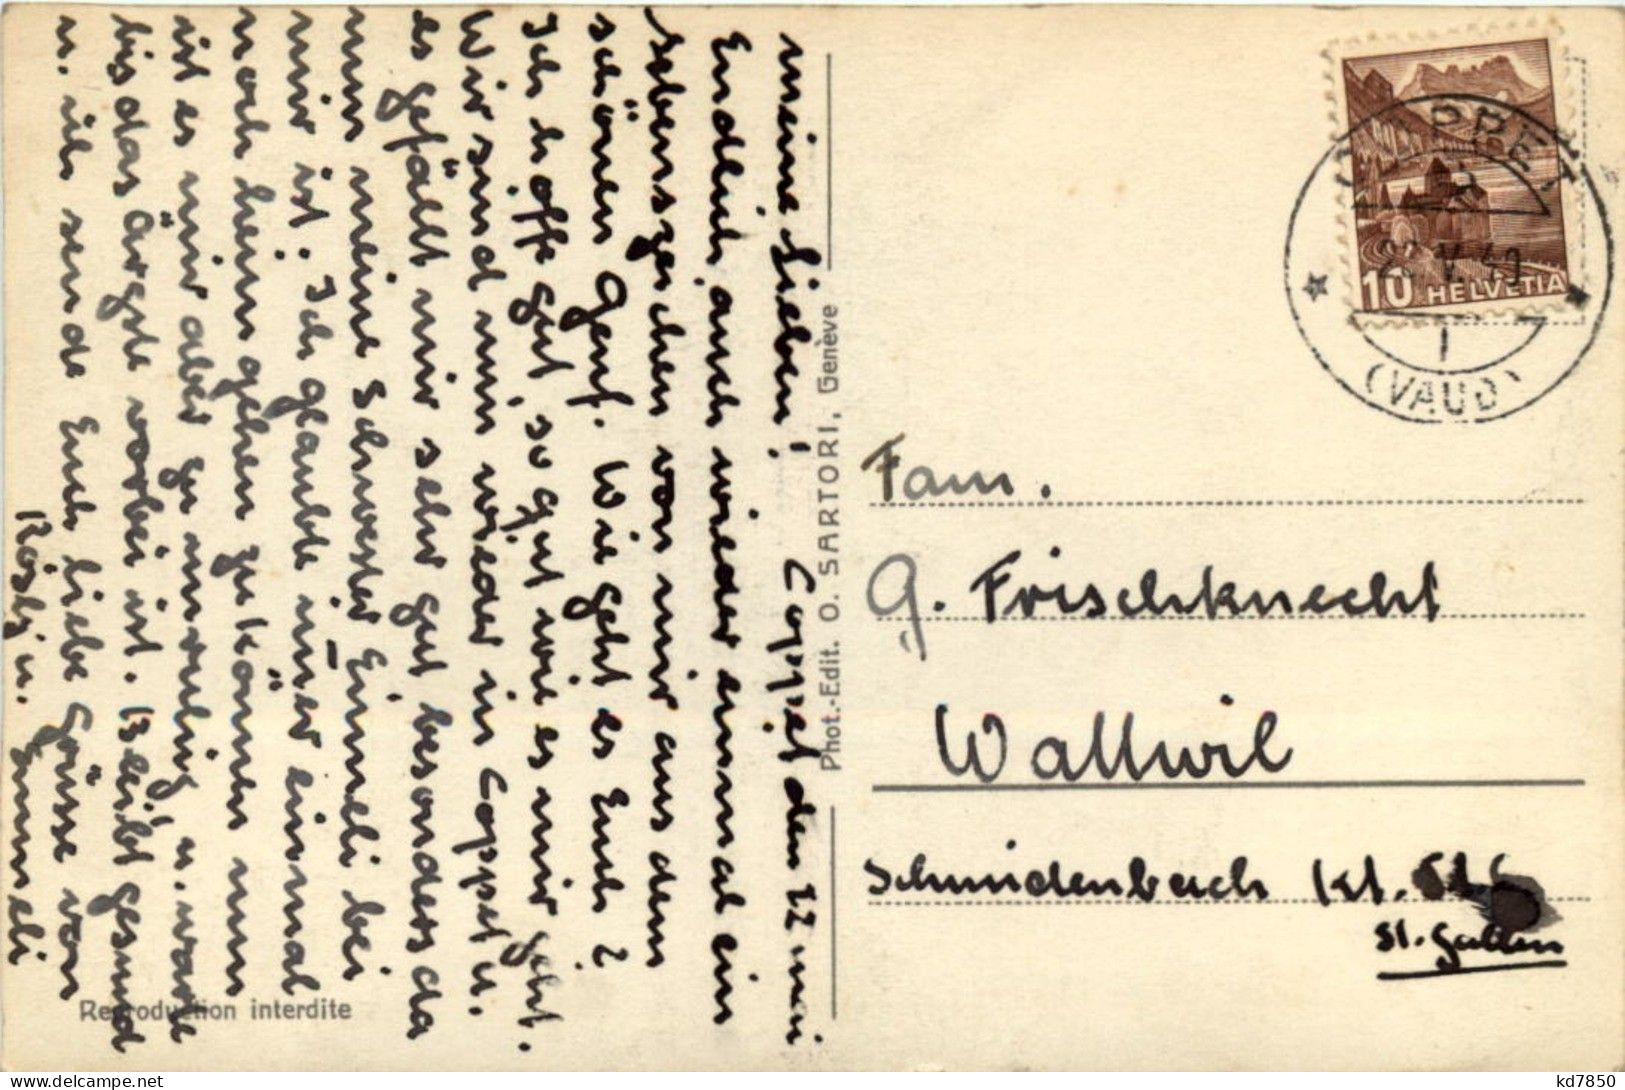 meine Lieben! Coppet den 22 mai
Endlich auch wieder einmal ein
Lebenszeichen von mir aus dem
schönen Genf. Wie geht es Euch?
Ich hoffe gut, so gut wie es mir geht.
Wir sind nun wieder in Coppet u.
es gefällt mir sehr gut besonders da
nun meine Schwester Emmeli bei
mir ist. Ich glaubte immer einmal
noch heim gehen zu können nun
ist es mir aber zu unruhig u. warte
bis das Ärgste vorbei ist. Bleibt gesund
u. ich sende Euch liebe Grüsse von
Rösly u. Emmeli
Phot.-Edit. O. SARTORI, Genève
Reproduction interdite
COPPET
22 V. 40
(VAUD)
10 HELVETIA
Fam.
G. Frischknecht
Wallwil
Schmidenbach Kt.
St. Gallen
kd7850